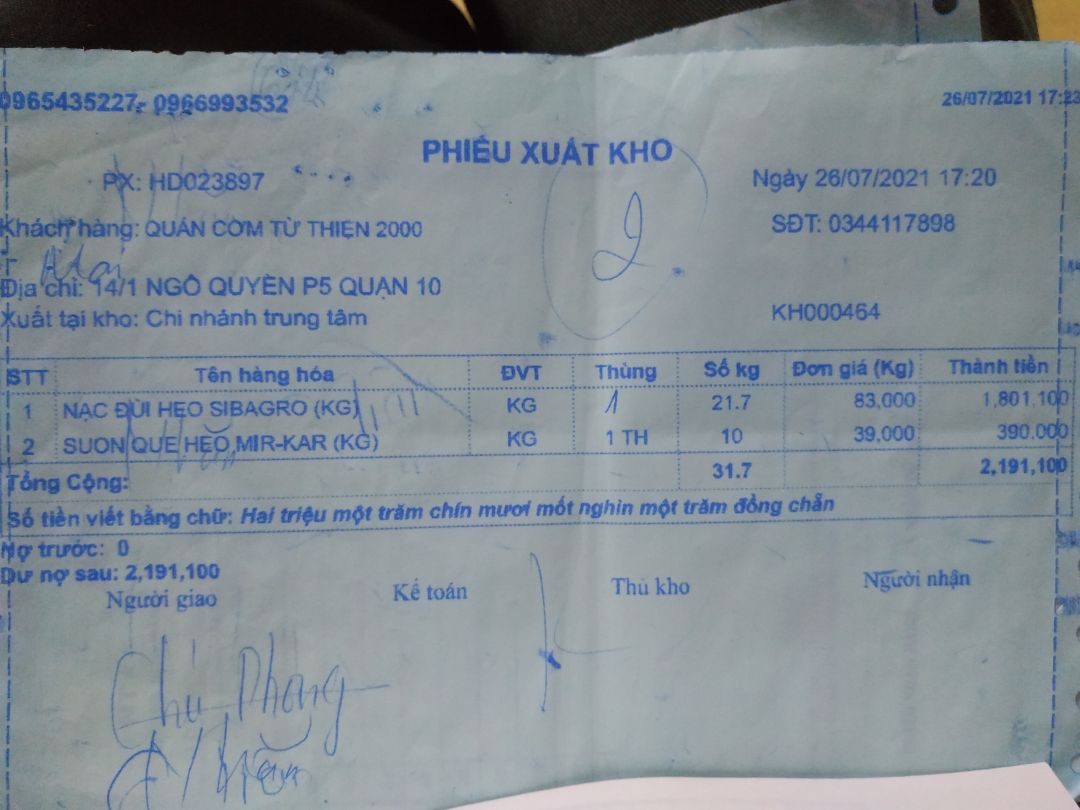 0965435227- 0966993532 26/07/2021 17:23
PHIẾU XUẤT KHO
PX: HD023897 Ngày 26/07/2021 17:20
2
Khách hàng: QUÁN CƠM TỪ THIỆN 2000 SĐT: 0344117898
Địa chỉ: 14/1 NGÔ QUYỀN P5 QUẬN 10
Xuất tại kho: Chi nhánh trung tâm KH000464
STT Tên hàng hóa ĐVT Thùng Số kg Đơn giá (Kg) Thành tiền
1 NẠC ĐÙI HEO SIBAGRO (KG) KG 1 21.7 83,000 1,801,100
2 SUON QUE HEO MIR-KAR (KG) KG 1 TH 10 39,000 390.000
Tổng Cộng: 31.7 2,191,100
Số tiền viết bằng chữ: Hai triệu một trăm chín mươi mốt nghìn một trăm đồng chẵn
Nợ trước: 0
Dư nợ sau: 2,191,100
Người giao Kế toán Thủ kho Người nhận
Chú Phong